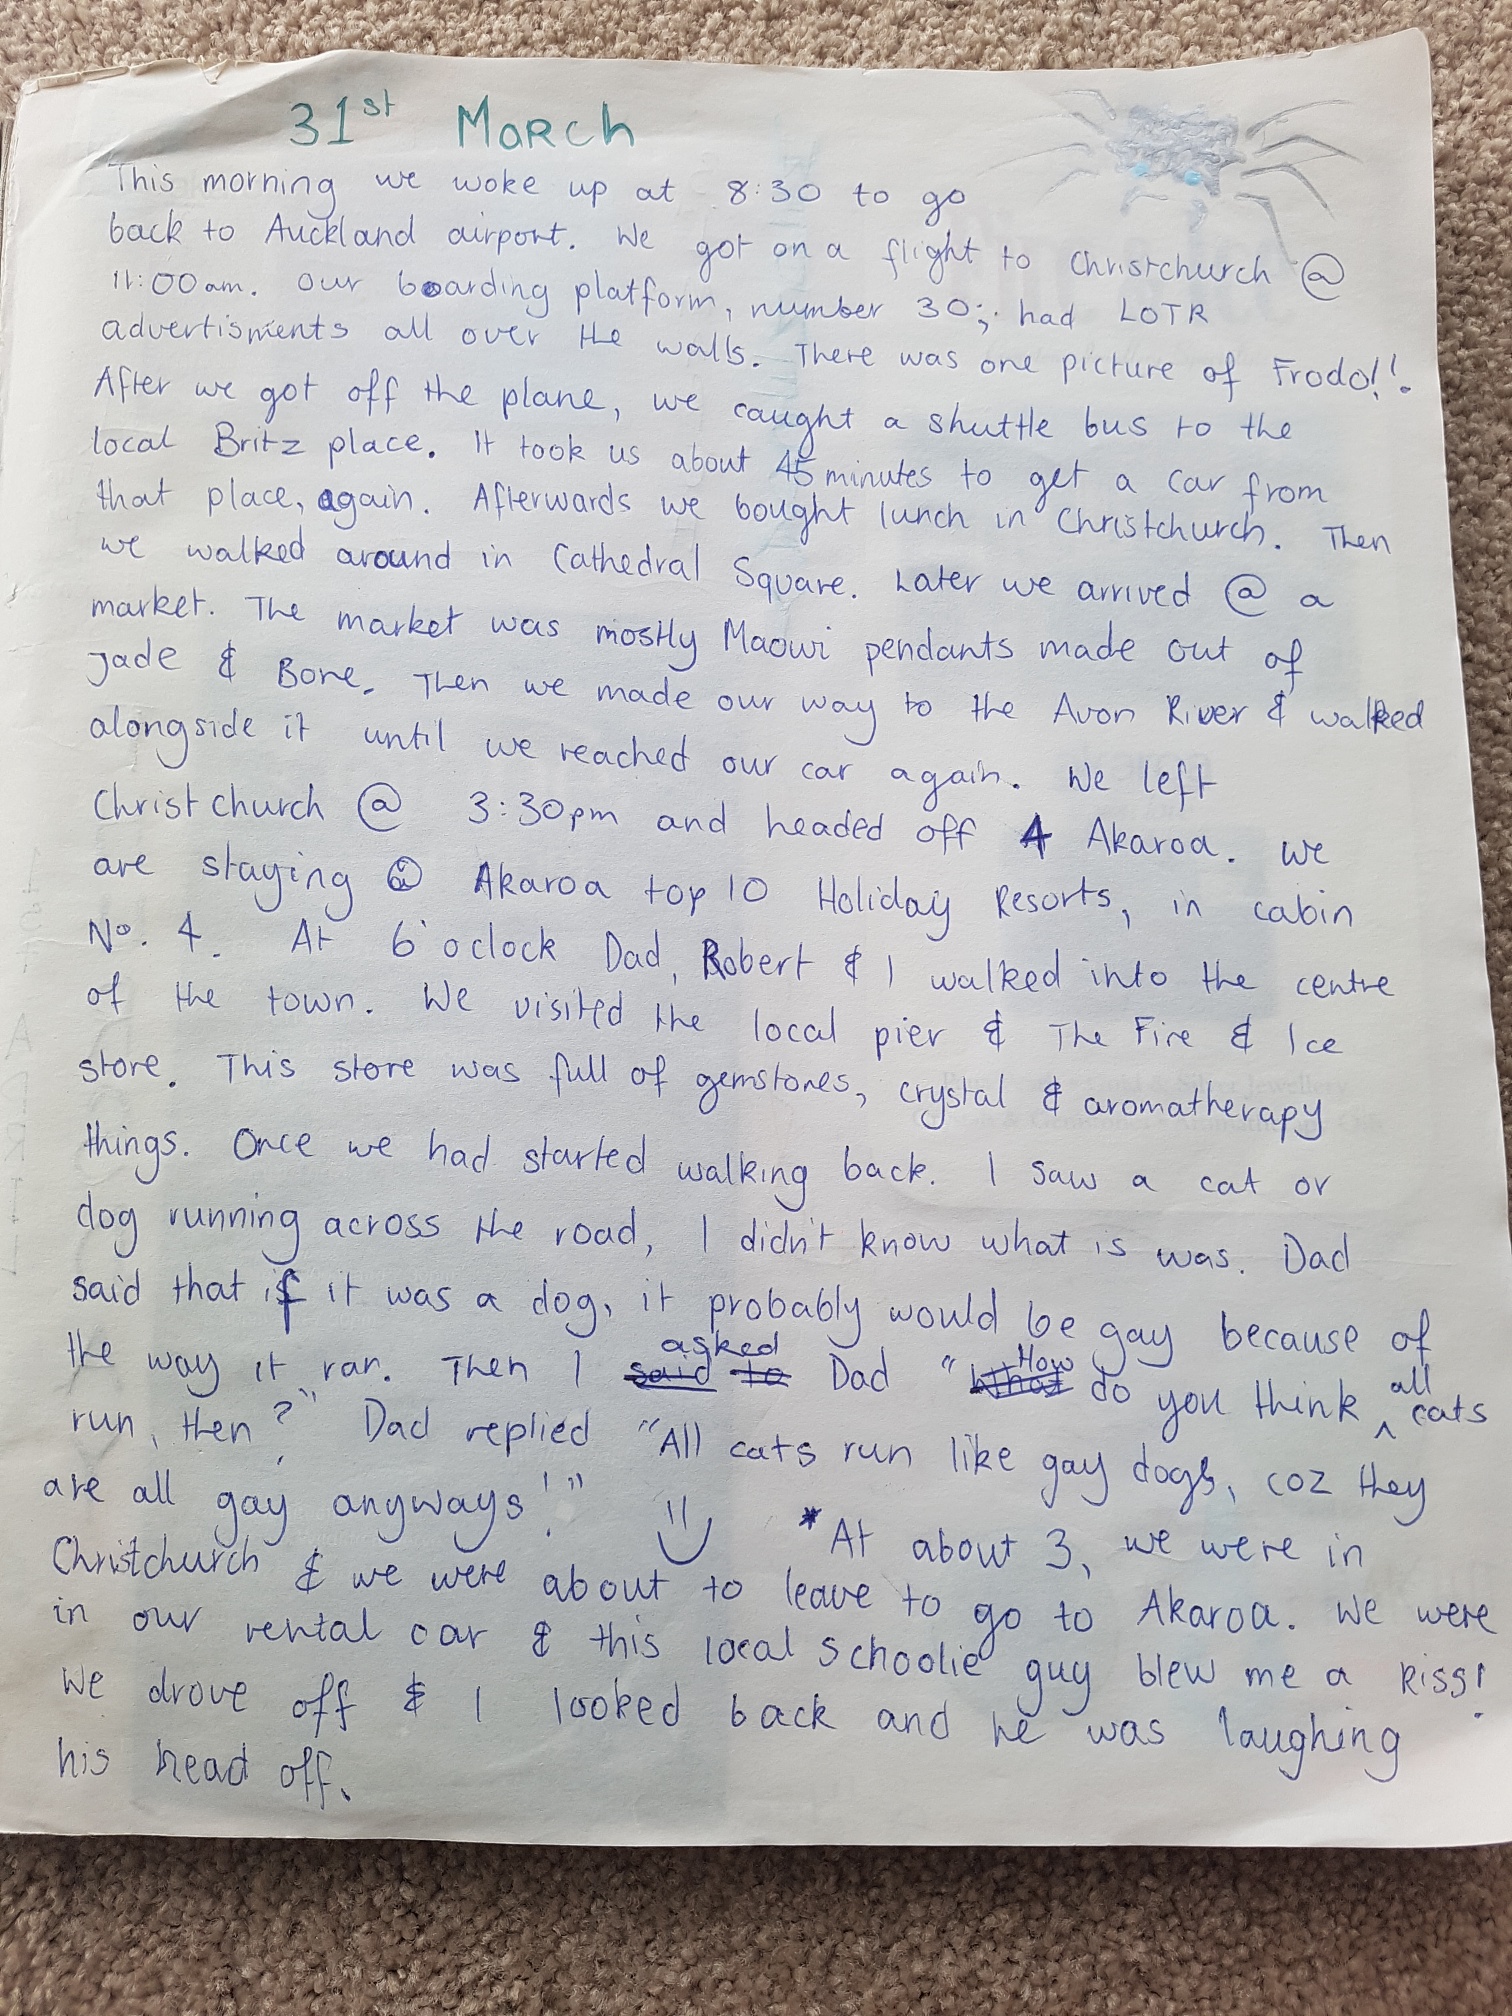 31st March
This morning we woke up at 8:30 to go
back to Auckland airport. We got on a flight to Christchurch @
11:00am. Our boarding platform, number 30; had LOTR
advertisments all over the walls. There was one picture of Frodo!!.
After we got off the plane, we caught a shuttle bus to the
local Britz place. It took us about 45 minutes to get a car from
that place, again. Afterwards we bought lunch in Christchurch. Then
we walked around in Cathedral Square. Later we arrived @ a
market. The market was mostly Maowi pendants made out of
Jade & Bone. Then we made our way to the Avon River & walked
alongside it until we reached our car again. We left
Christchurch @ 3:30pm and headed off 4 Akaroa. We
are staying @ Akaroa top 10 Holiday Resorts, in cabin
No. 4. At 6'oclock Dad, Robert & I walked into the centre
of the town. We visited the local pier & The Fire & Ice
store. This store was full of gemstones, crystal & aromatherapy
things. Once we had started walking back. I saw a cat or
dog running across the road, I didn't know what is was. Dad
said that if it was a dog, it probably would be gay because of
the way it ran. Then I said to asked Dad "What How do you think all cats
run, then?" Dad replied "All cats run like gay dogs, coz they
are all gay anyways!"
*At about 3, we were in
Christchurch & we were about to leave to go to Akaroa. We were
in our rental car & this local schoolie guy blew me a kiss!
We drove off & I looked back and he was laughing
his head off.